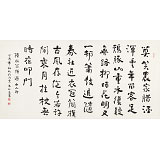 莫笑農家臘酒
渾豐年留客足
雞豚山重水復疑
無路柳暗花明又
一邨簫鼓追隨
春社近衣冠簡朴
古風存從今若許
閒乘月拄杖無
時夜叩門